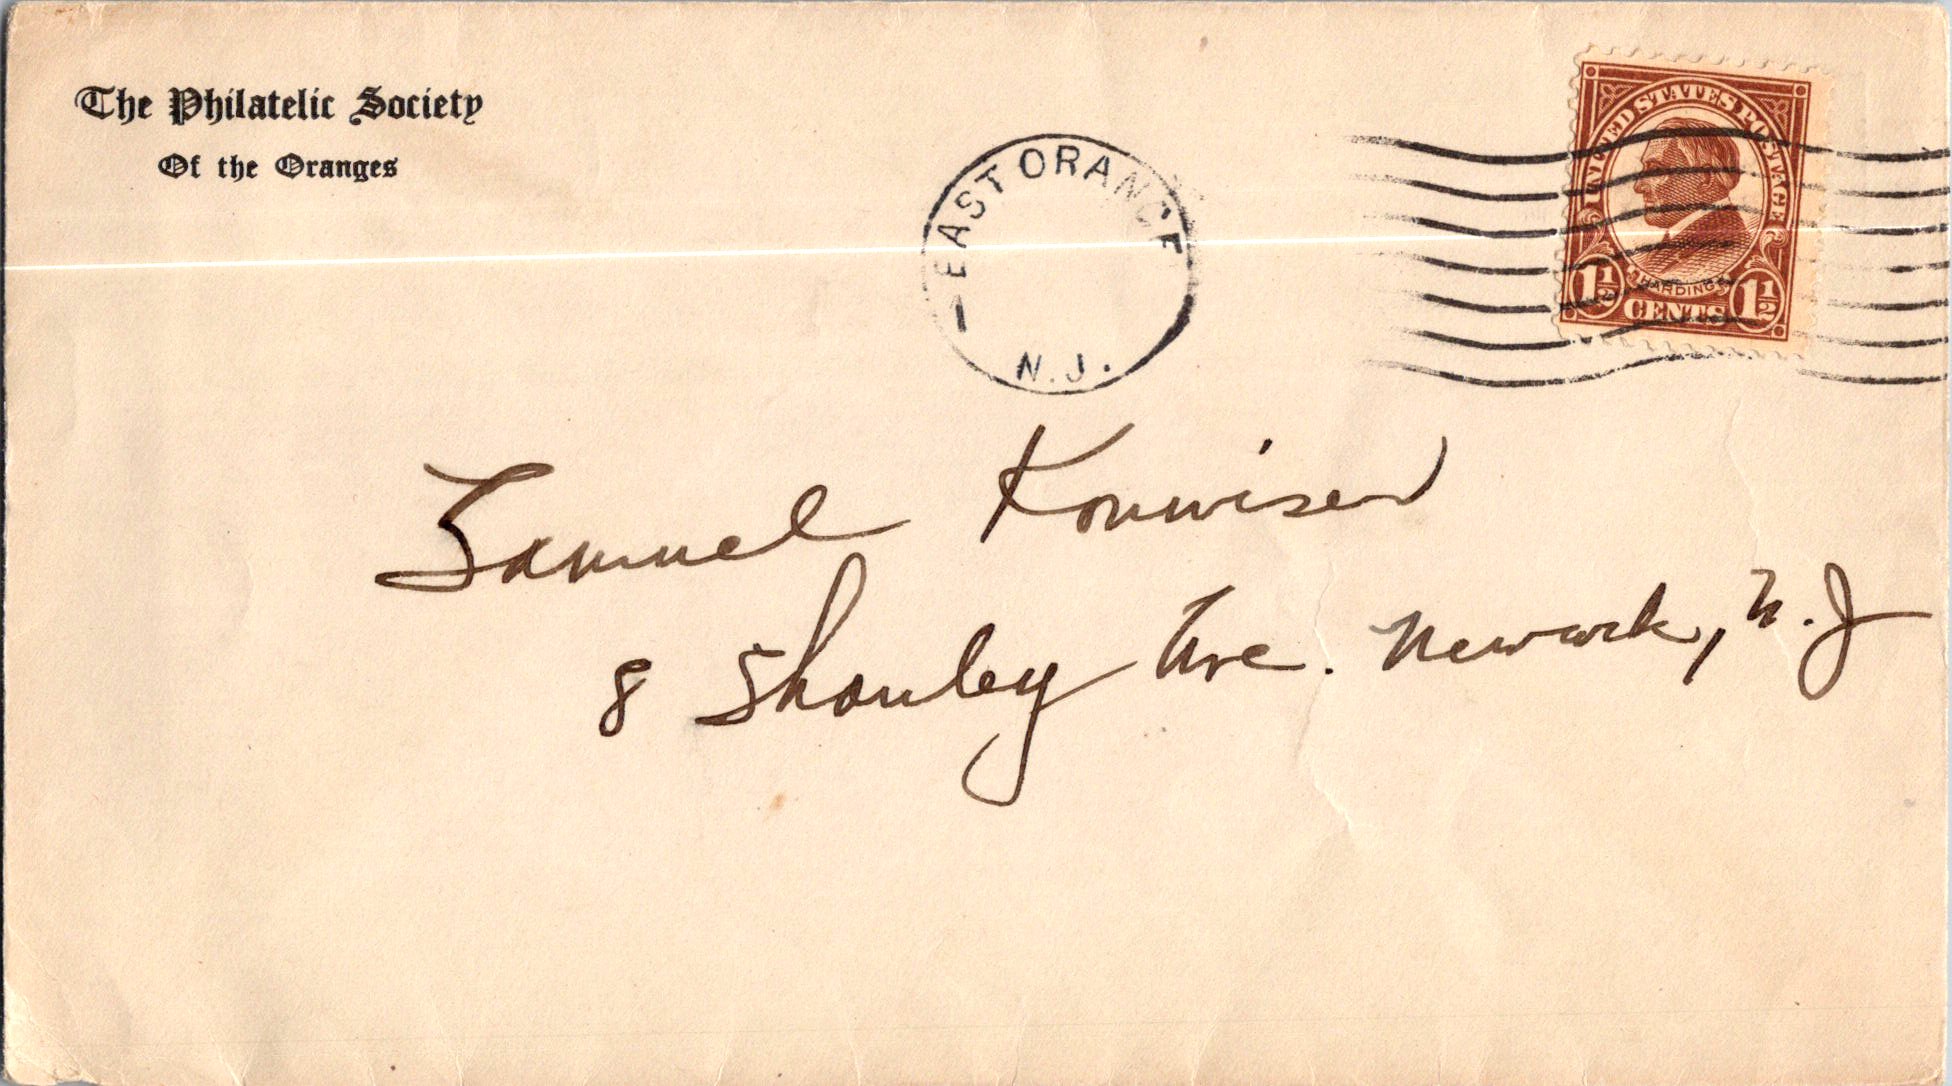 The Philatelic Society
Of the Oranges
EAST ORANGE
N.J.
UNITED STATES POSTAGE
HARDING
1½ CENTS 1½
Samuel Konwiser
8 Shanley Ave. Newark, N.J